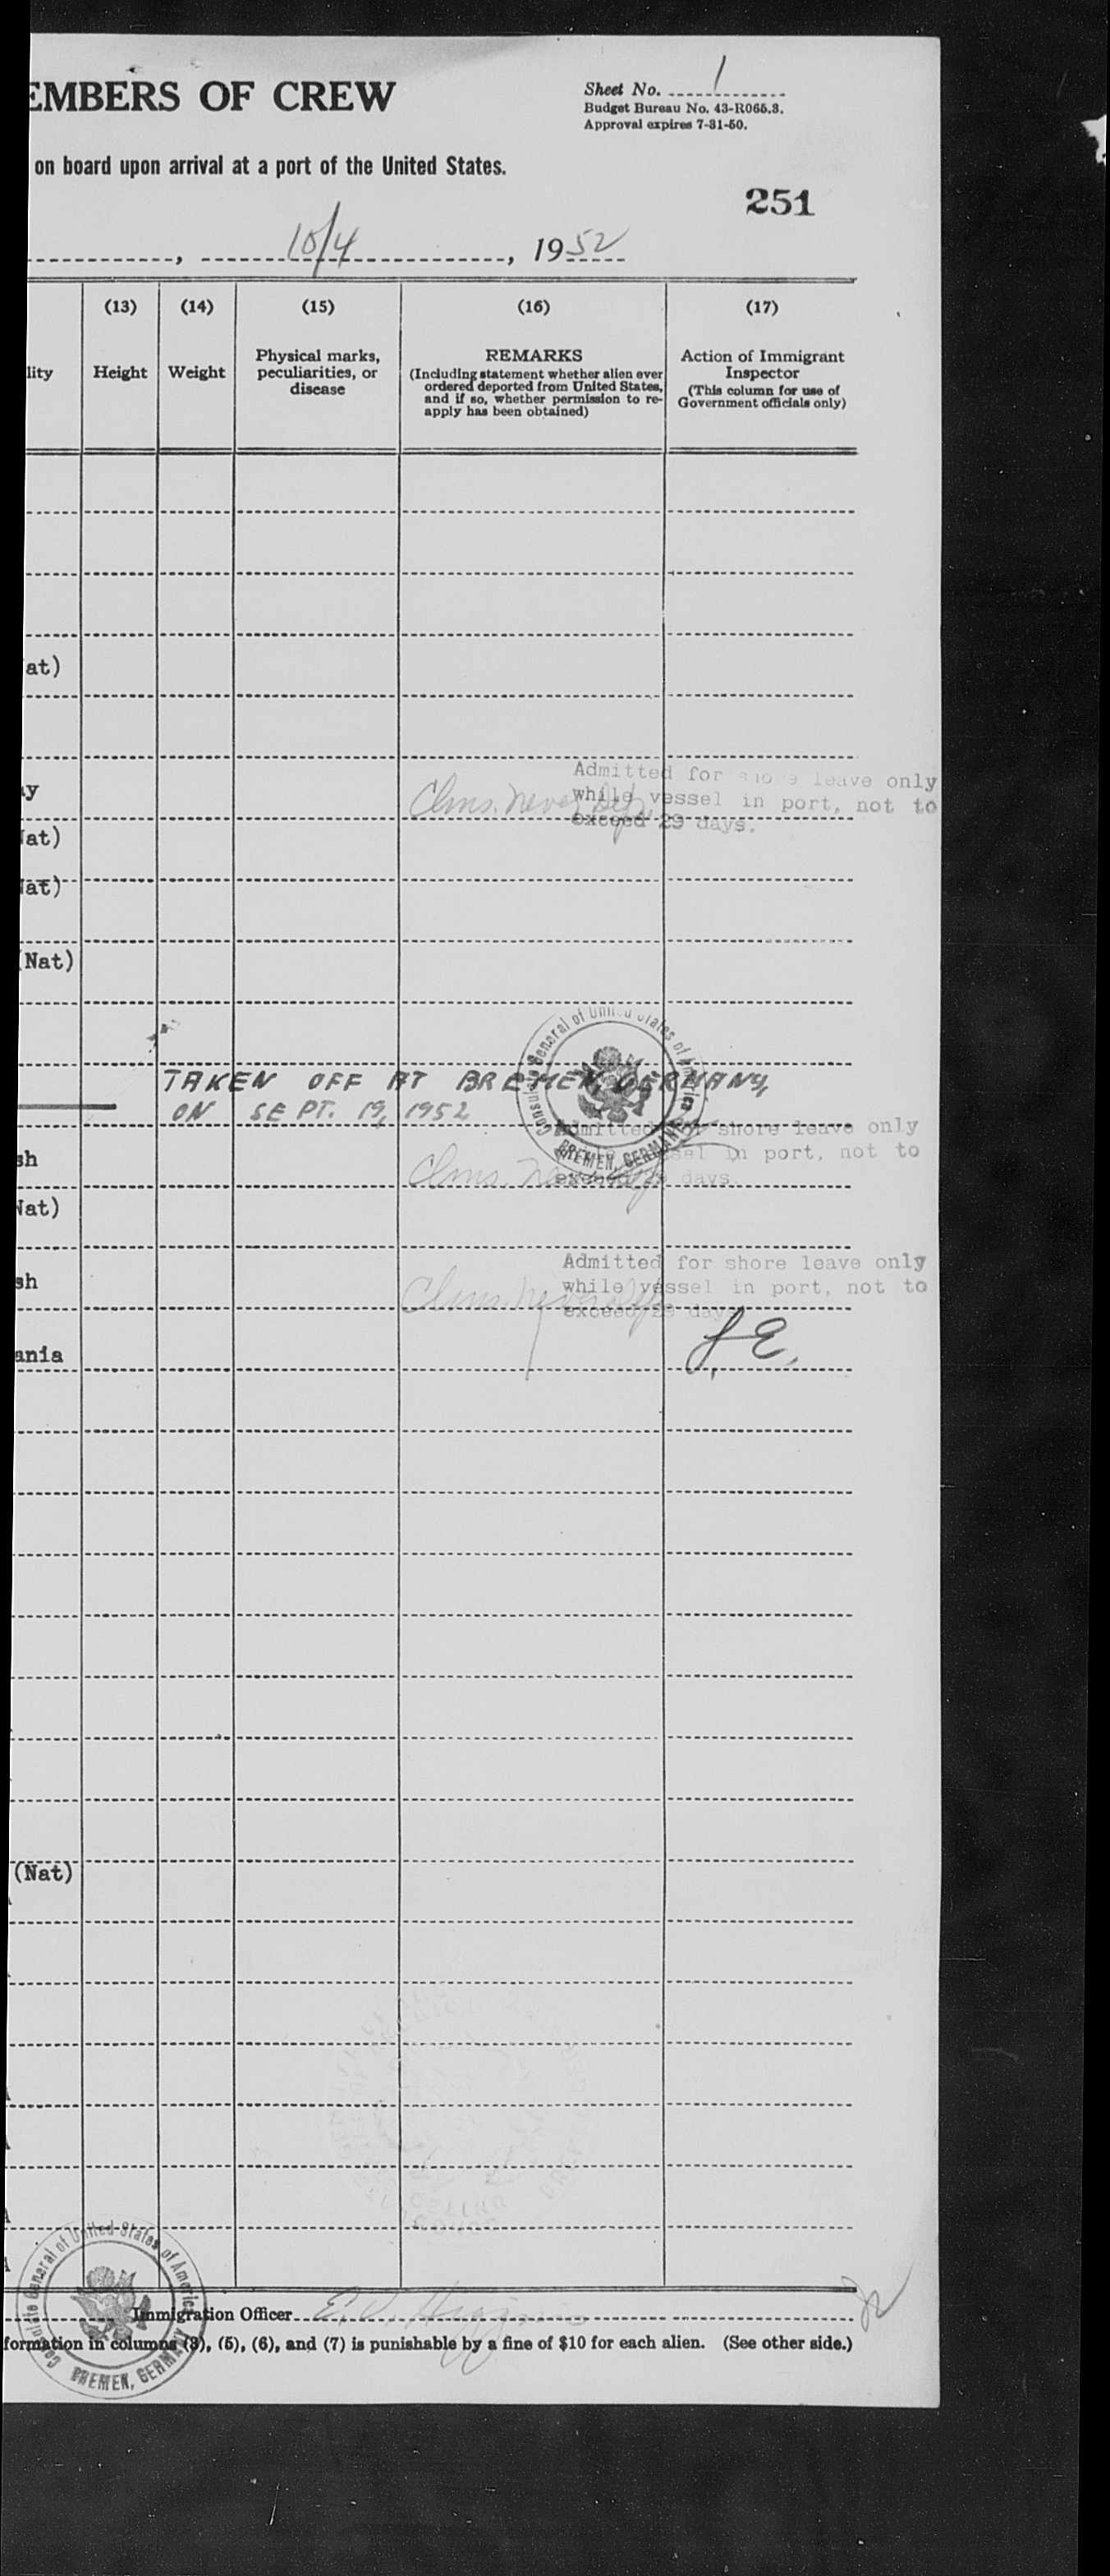 EMBERS OF CREW
Sheet No. 1
Budget Bureau No. 43-R065.3.
Approval expires 7-31-50.
on board upon arrival at a port of the United States.
251
10/4, 1952
(13) (14) (15) (16) (17)
lity Height Weight
Physical marks, peculiarities, or disease
REMARKS
(Including statement whether alien ever
ordered deported from United States,
and if so, whether permission to re-
apply has been obtained)
Action of Immigrant
Inspector
(This column for use of
Government officials only)
at)
Admitted for shore leave only
y Clms. never while vessel in port, not to
exceed 29 days.
at)
at)
(Nat)
Consulate General of United States of America
BREMEN, GERMANY
TAKEN OFF AT BREMEN, GERMANY,
ON SEPT. 19, 1952
Admitted for shore leave only
sh Clms. in port, not to
exceed 29 days.
Nat)
Admitted for shore leave only
sh Clms. never while vessel in port, not to
exceed 29 days
ania J.E.
(Nat)
Consulate General of United States of America
BREMEN, GERMANY
Immigration Officer
formation in columns (3), (5), (6), and (7) is punishable by a fine of $10 for each alien. (See other side.)